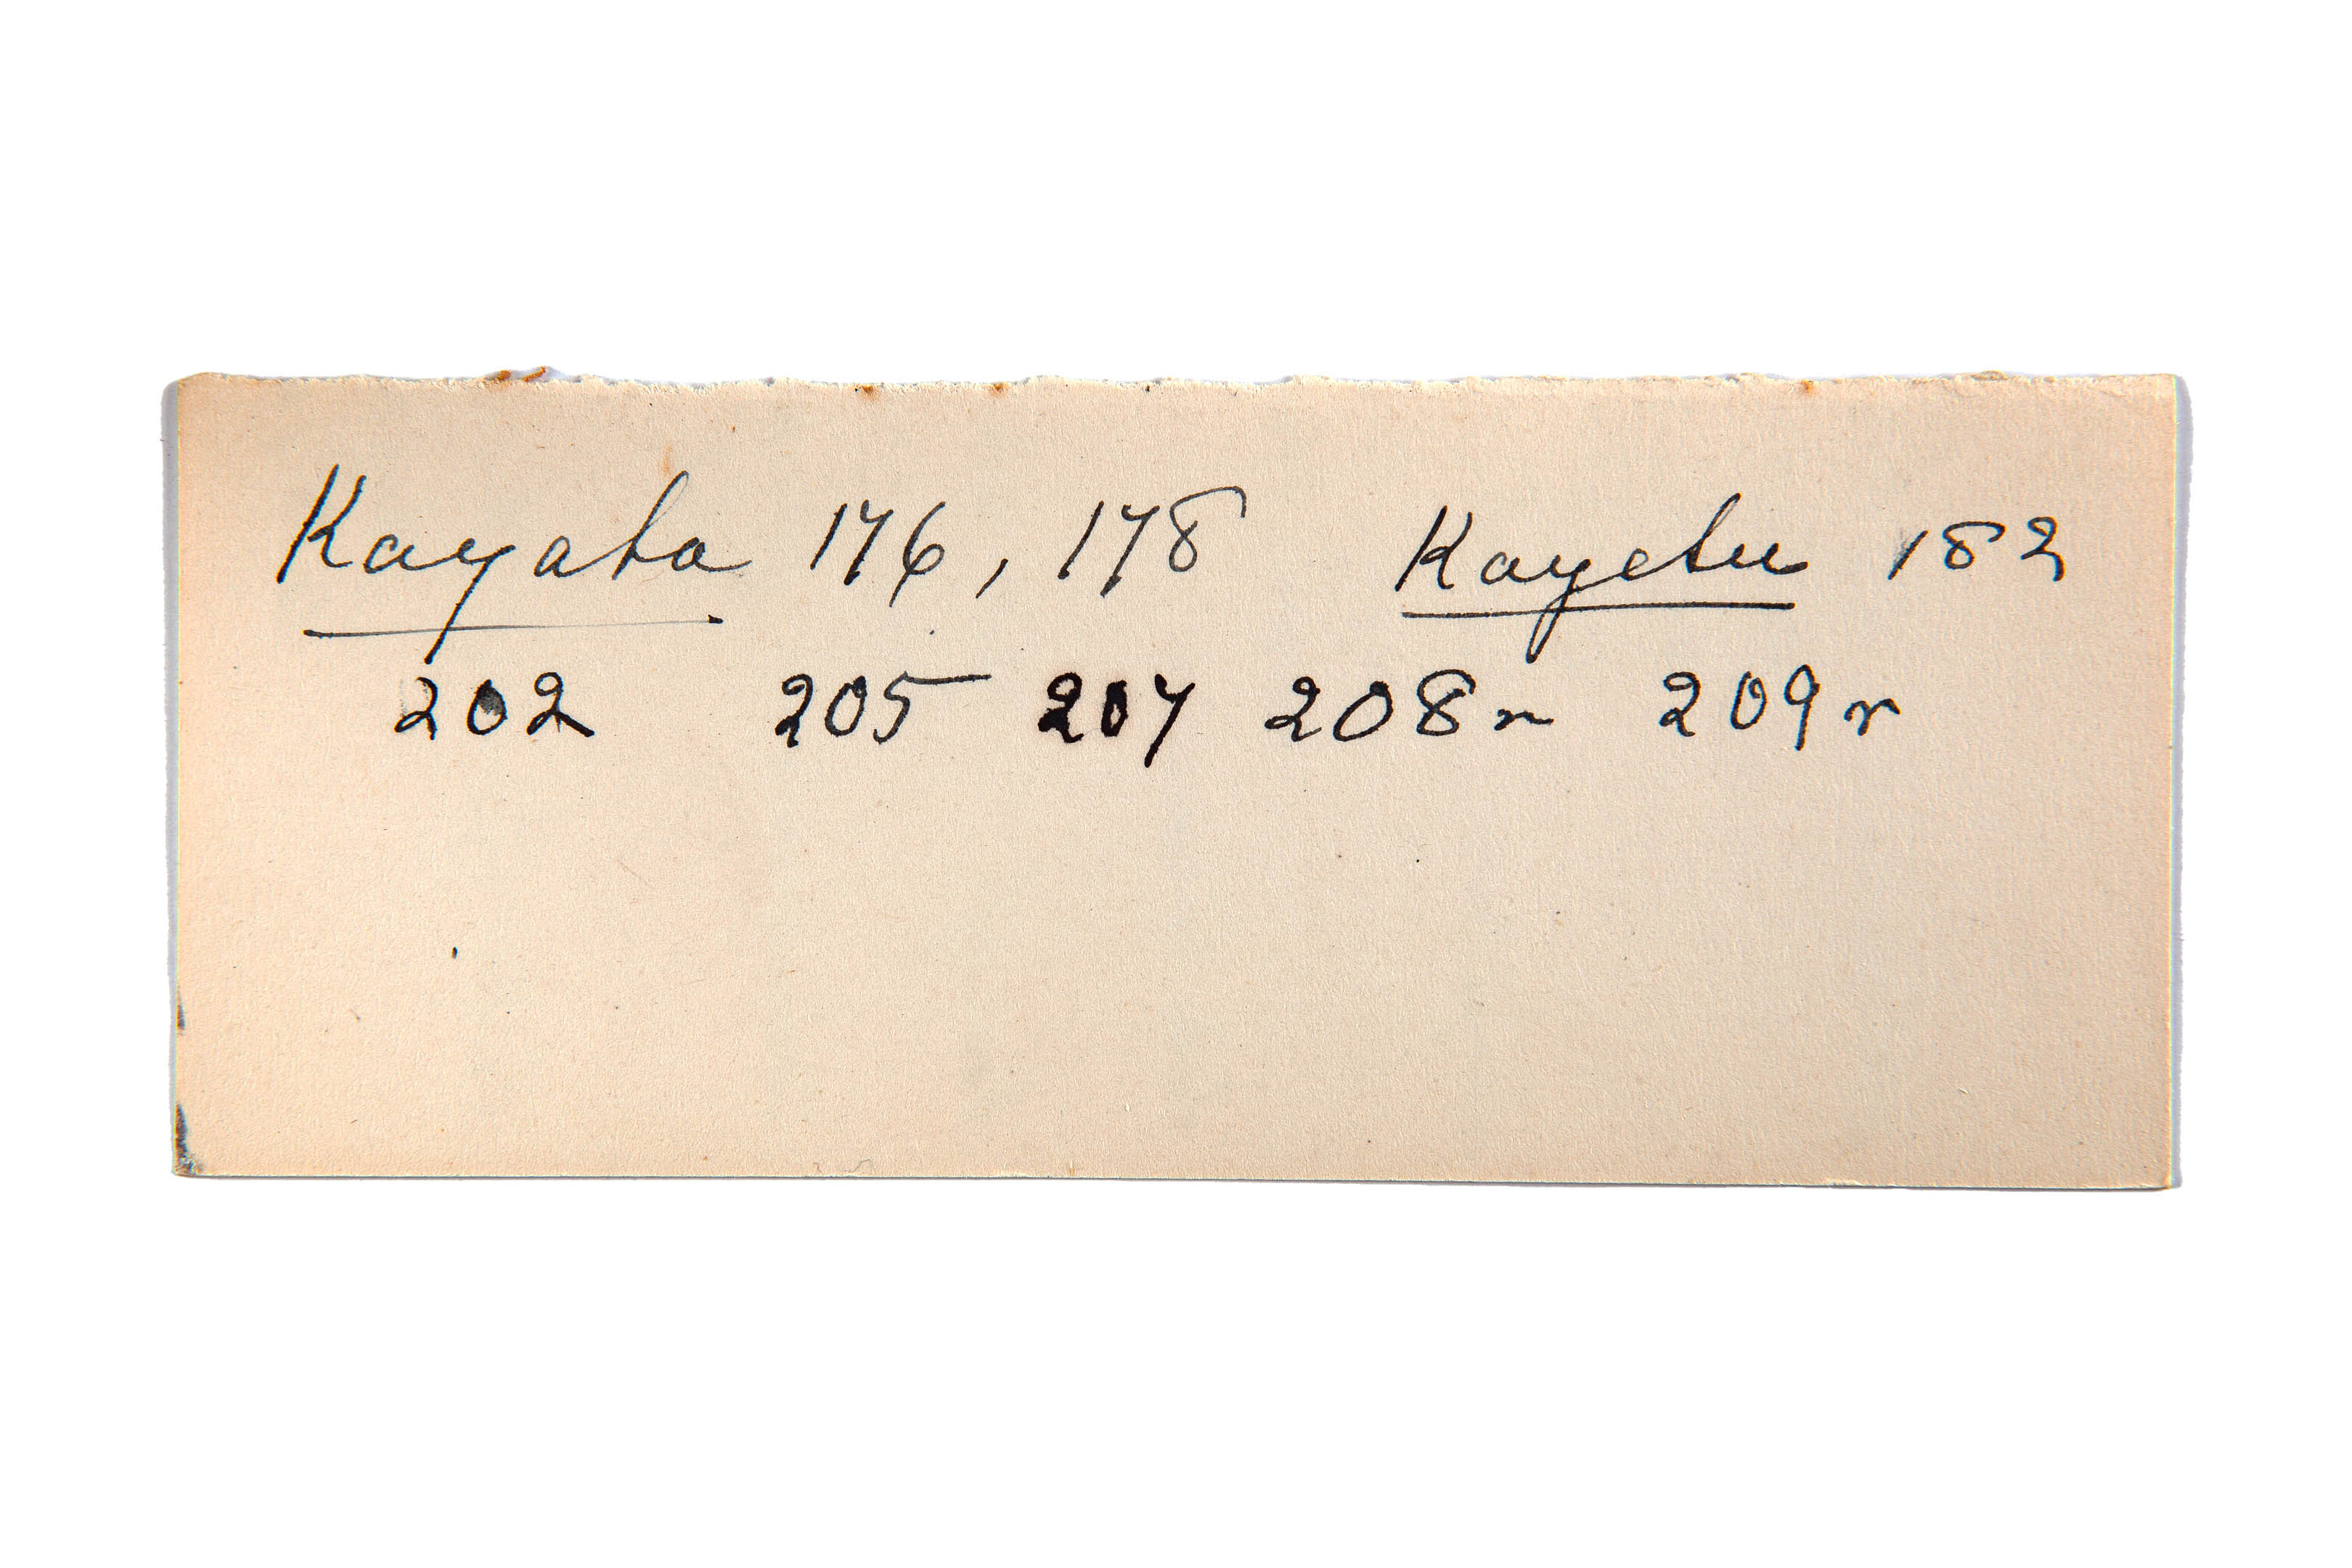 Kayaba 176, 178 Kayebu 182
202 205 207 208r 209r